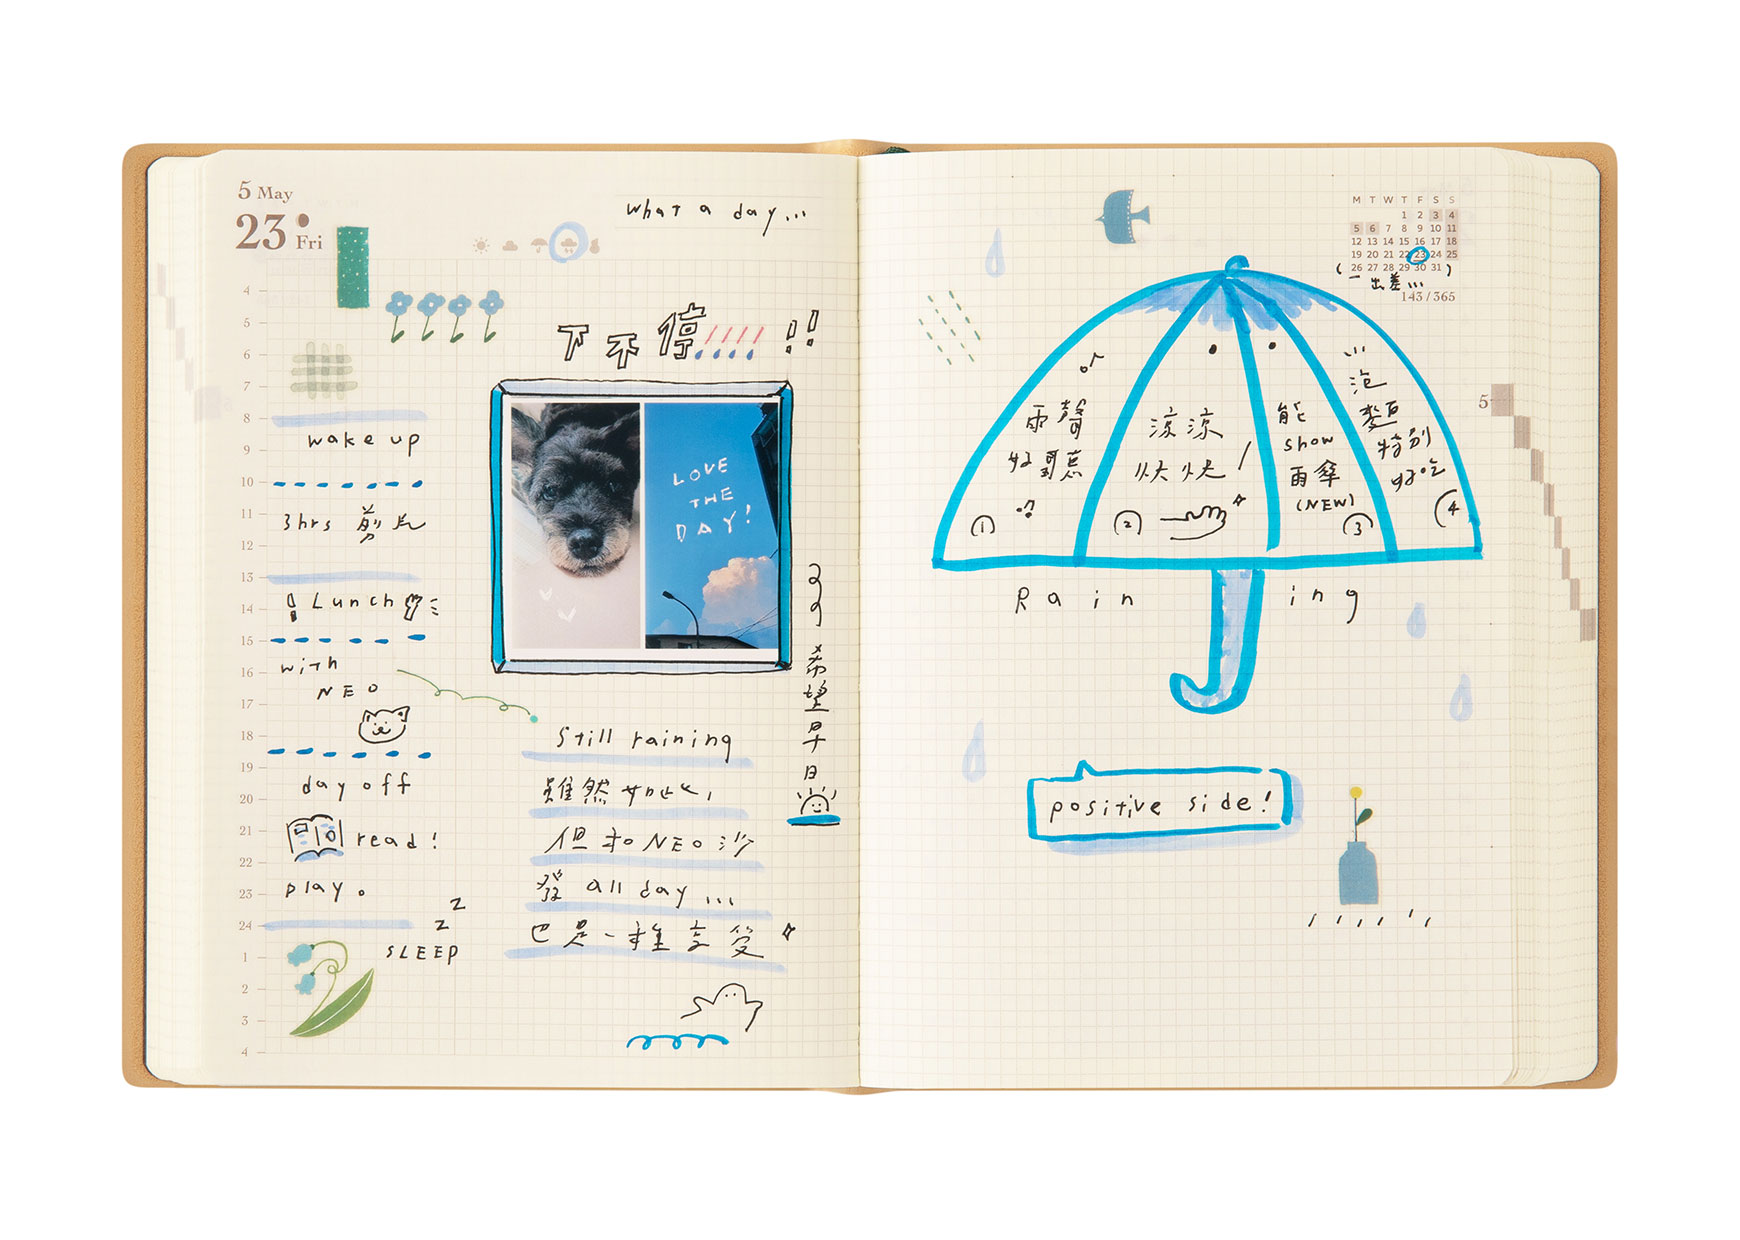 5 May
23 Fri
what a day...
下不停!!!! !!
4
5
6
7
8
wake up
9
10
3hrs 剪片
11
12
13
Lunch
14
15
with
NEO
16
17
18
19
day off
20
read!
21
22
play。
23
24
z
z
SLEEP
1
2
3
4
LOVE
THE
DAY!
希望早日
still raining
雖然如此,
但和NEO沙
發 all day...
也是一種享受
M T W T F S S
1 2 3 4
5 6 7 8 9 10 11
12 13 14 15 16 17 18
19 20 21 22 23 24 25
26 27 28 29 30 31
(一出差...)
143/365
5
雨聲
好聽
①
涼涼
快快
②
能
show
雨傘
(NEW)
③
泡
麵
特別
好吃
④
Raining
positive side!